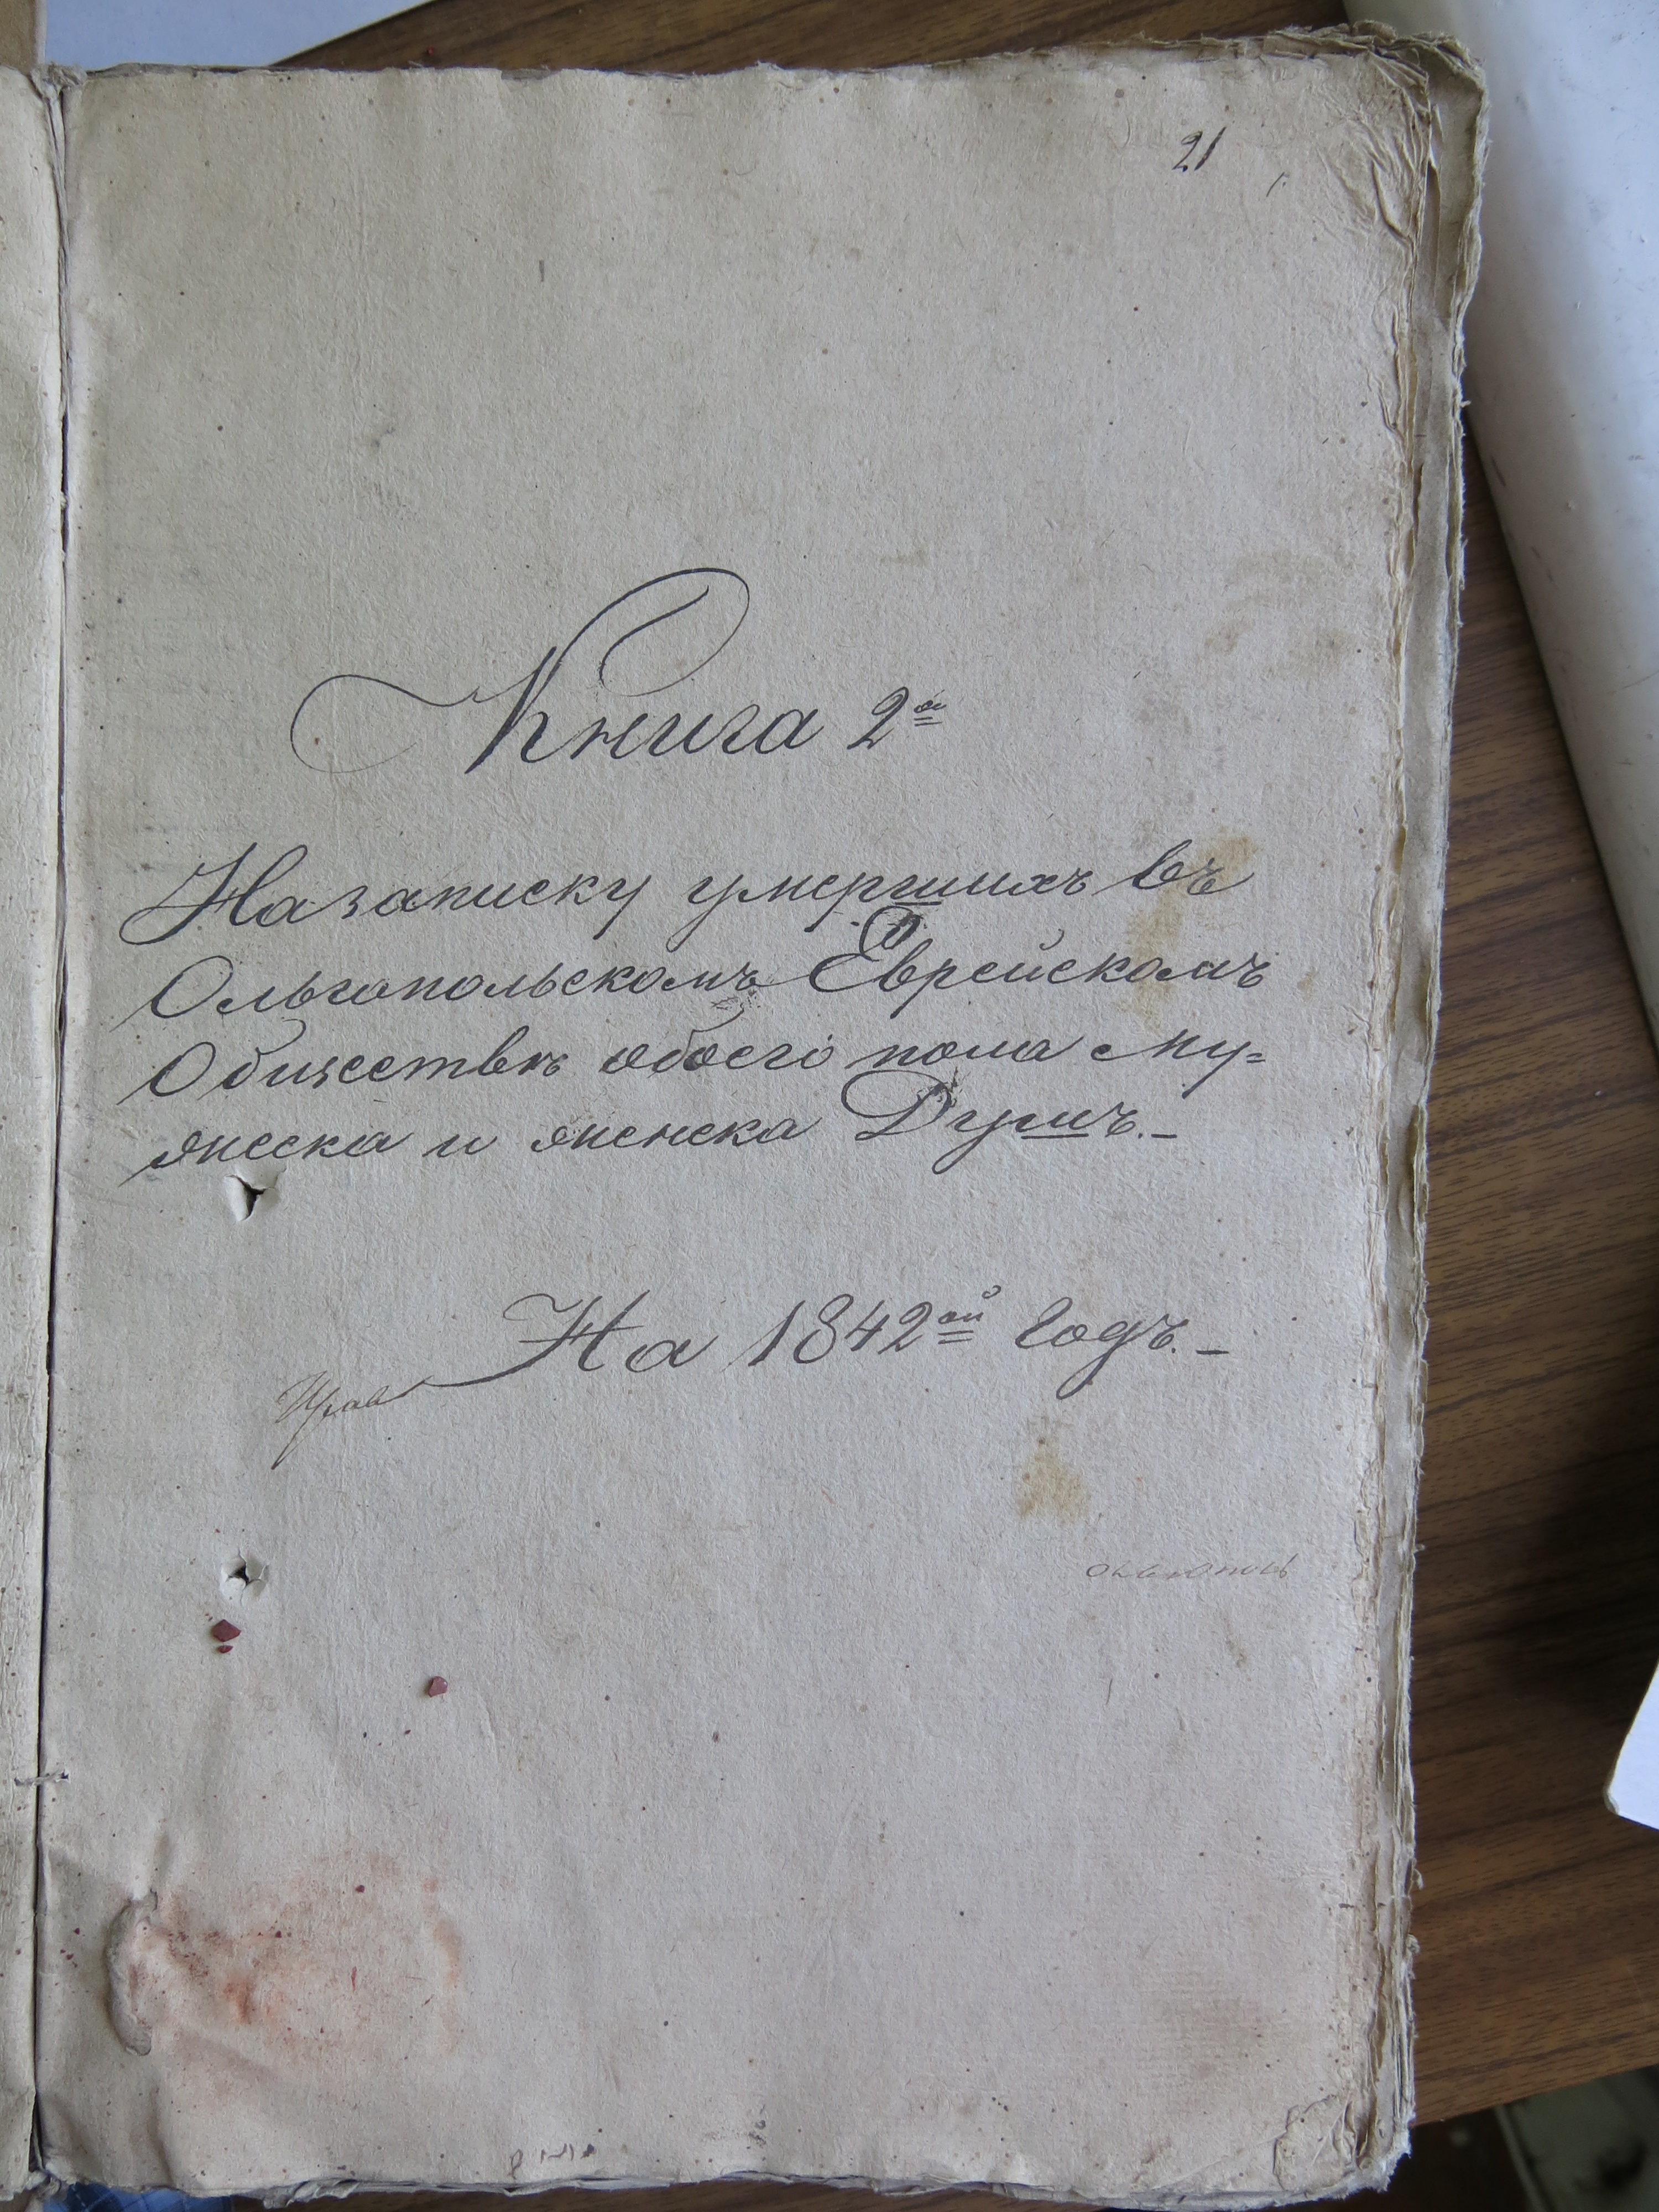 21
Книга 2ª
На записку умершихъ въ
Ольгопольскомъ Еврейскомъ
Обществѣ обоего пола му=
жеска и женска Душъ.–
На 1842ой Годъ.–